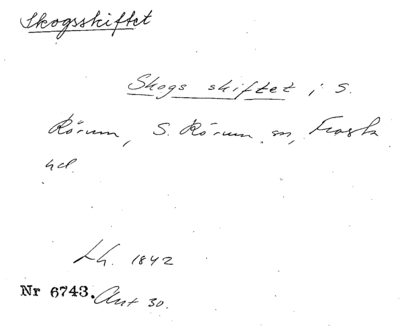 Skogsskiftet
Skogs skiftet i S.
Rörum, S. Rörum sn, Frosta
hd.
Lh. 1842
Nr 6743. Ant 30.